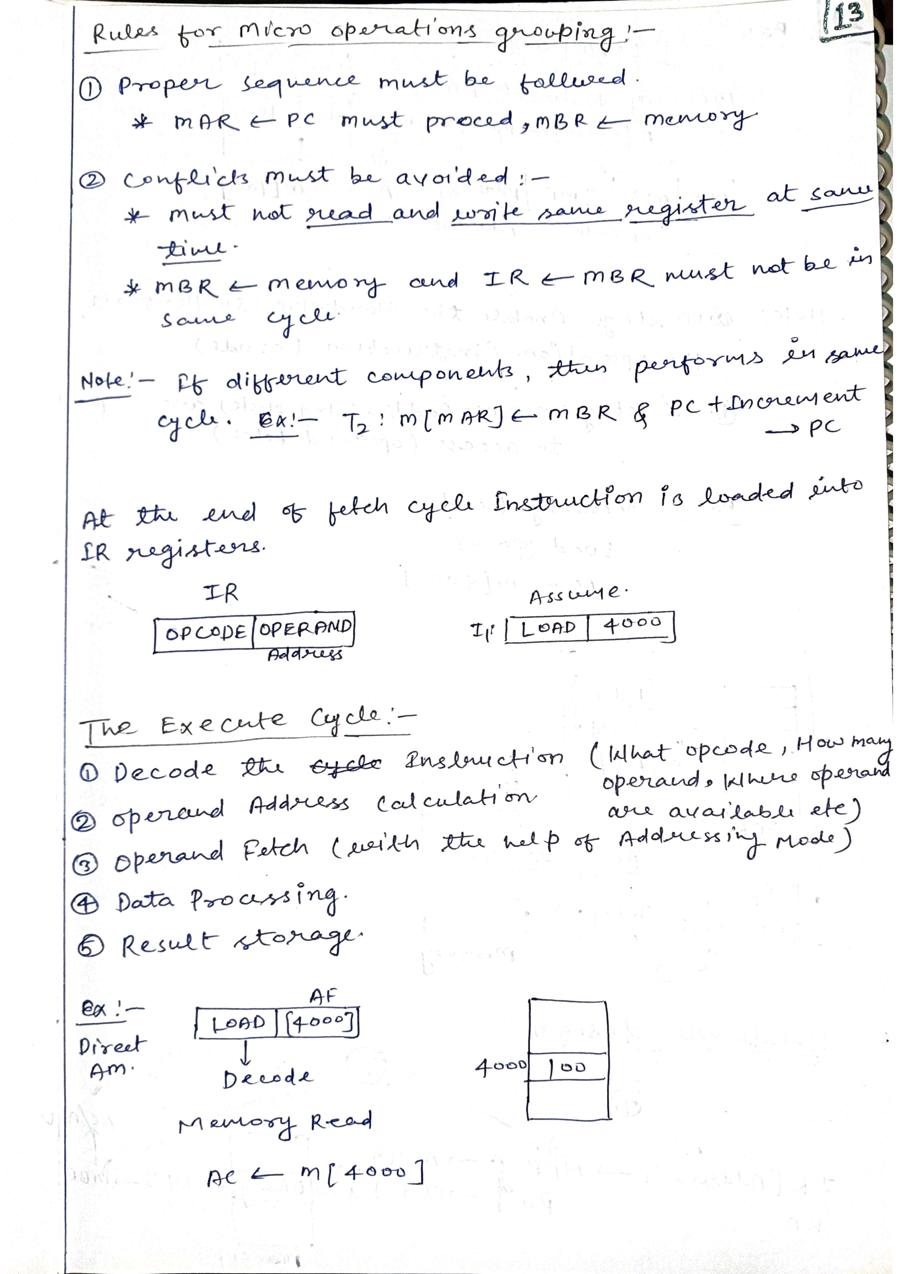 13
Rules for Micro operations grouping :-
① Proper sequence must be follwed.
* MAR ← PC must proced, MBR ← memory
② Conflicts must be avoided :-
* must not read and write same register at same
time.
* MBR ← memory and IR ← MBR must not be in
same cycle.
Note :- If different components, then performs in same
cycle. Ex:- T2 : M[MAR] ← MBR & PC + Increment
→ PC
At the end of fetch cycle Instruction is loaded into
IR registers.
IR
OPCODE OPERAND
Address
Assume.
I1: LOAD 4000
The Execute Cycle :-
① Decode the cycle Instruction (What opcode, How many
operand, Where operand
are available etc)
② operand Address Calculation
③ Operand Fetch (with the help of Addressing Mode)
④ Data Processing.
⑤ Result storage.
Ex :-
Direct
Am.
AF
LOAD [4000]
↓
Decode
Memory Read
AC ← M[4000]
4000 100